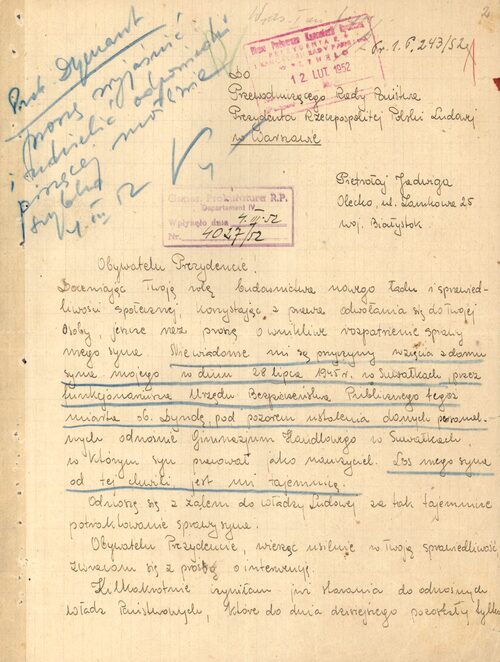 2
Pr. I. 6. 243/52
12 LUT. 1952
Prok. Dymant
proszę wyjaśnić
i udzielić odpowiedzi
piszącej możliwie
szybko
4 III 52
Do
Przewodniczącego Rady Państwa
Prezydenta Rzeczpospolitej Polski Ludowej
w Warszawie
Pietrołaj Jadwiga
Olecko, ul. Zamkowa 25
woj. Białystok
Gener. Prokuratura R.P.
Departament IV
Wpłynęło dnia 4. III. 52
Nr. 4027/52
Obywatelu Prezydencie.
Doceniając Twoją rolę budownictwa nowego ładu i sprawied-
liwości społecznej, korzystając z prawa odwołania się do Twojej
Osoby, jeszcze raz proszę o wnikliwe rozpatrzenie sprawy
mego syna. Niewiadome mi są przyczyny wzięcia z domu
syna mojego w dniu 28 lipca 1945 r. w Suwałkach, przez
funkcjonariusza Urzędu Bezpieczeństwa Publicznego tegoż
miasta ob. Dyndę, pod pozorem ustalenia danych personal-
nych odnośnie Gimnazjum Handlowego w Suwałkach,
w którym syn pracował jako nauczyciel. Los mego syna
od tej chwili jest mi tajemnicą.
Odnoszę się z żalem do władzy Ludowej za tak tajemnicze
potraktowanie sprawy syna.
Obywatelu Prezydencie, wierząc usilnie w Twoją sprawiedliwość
zwracam się z prośbą o interwencję.
Kilkakrotnie czyniłam już starania do odnośnych
władz Państwowych, które do dnia dzisiejszego pozostały tylko